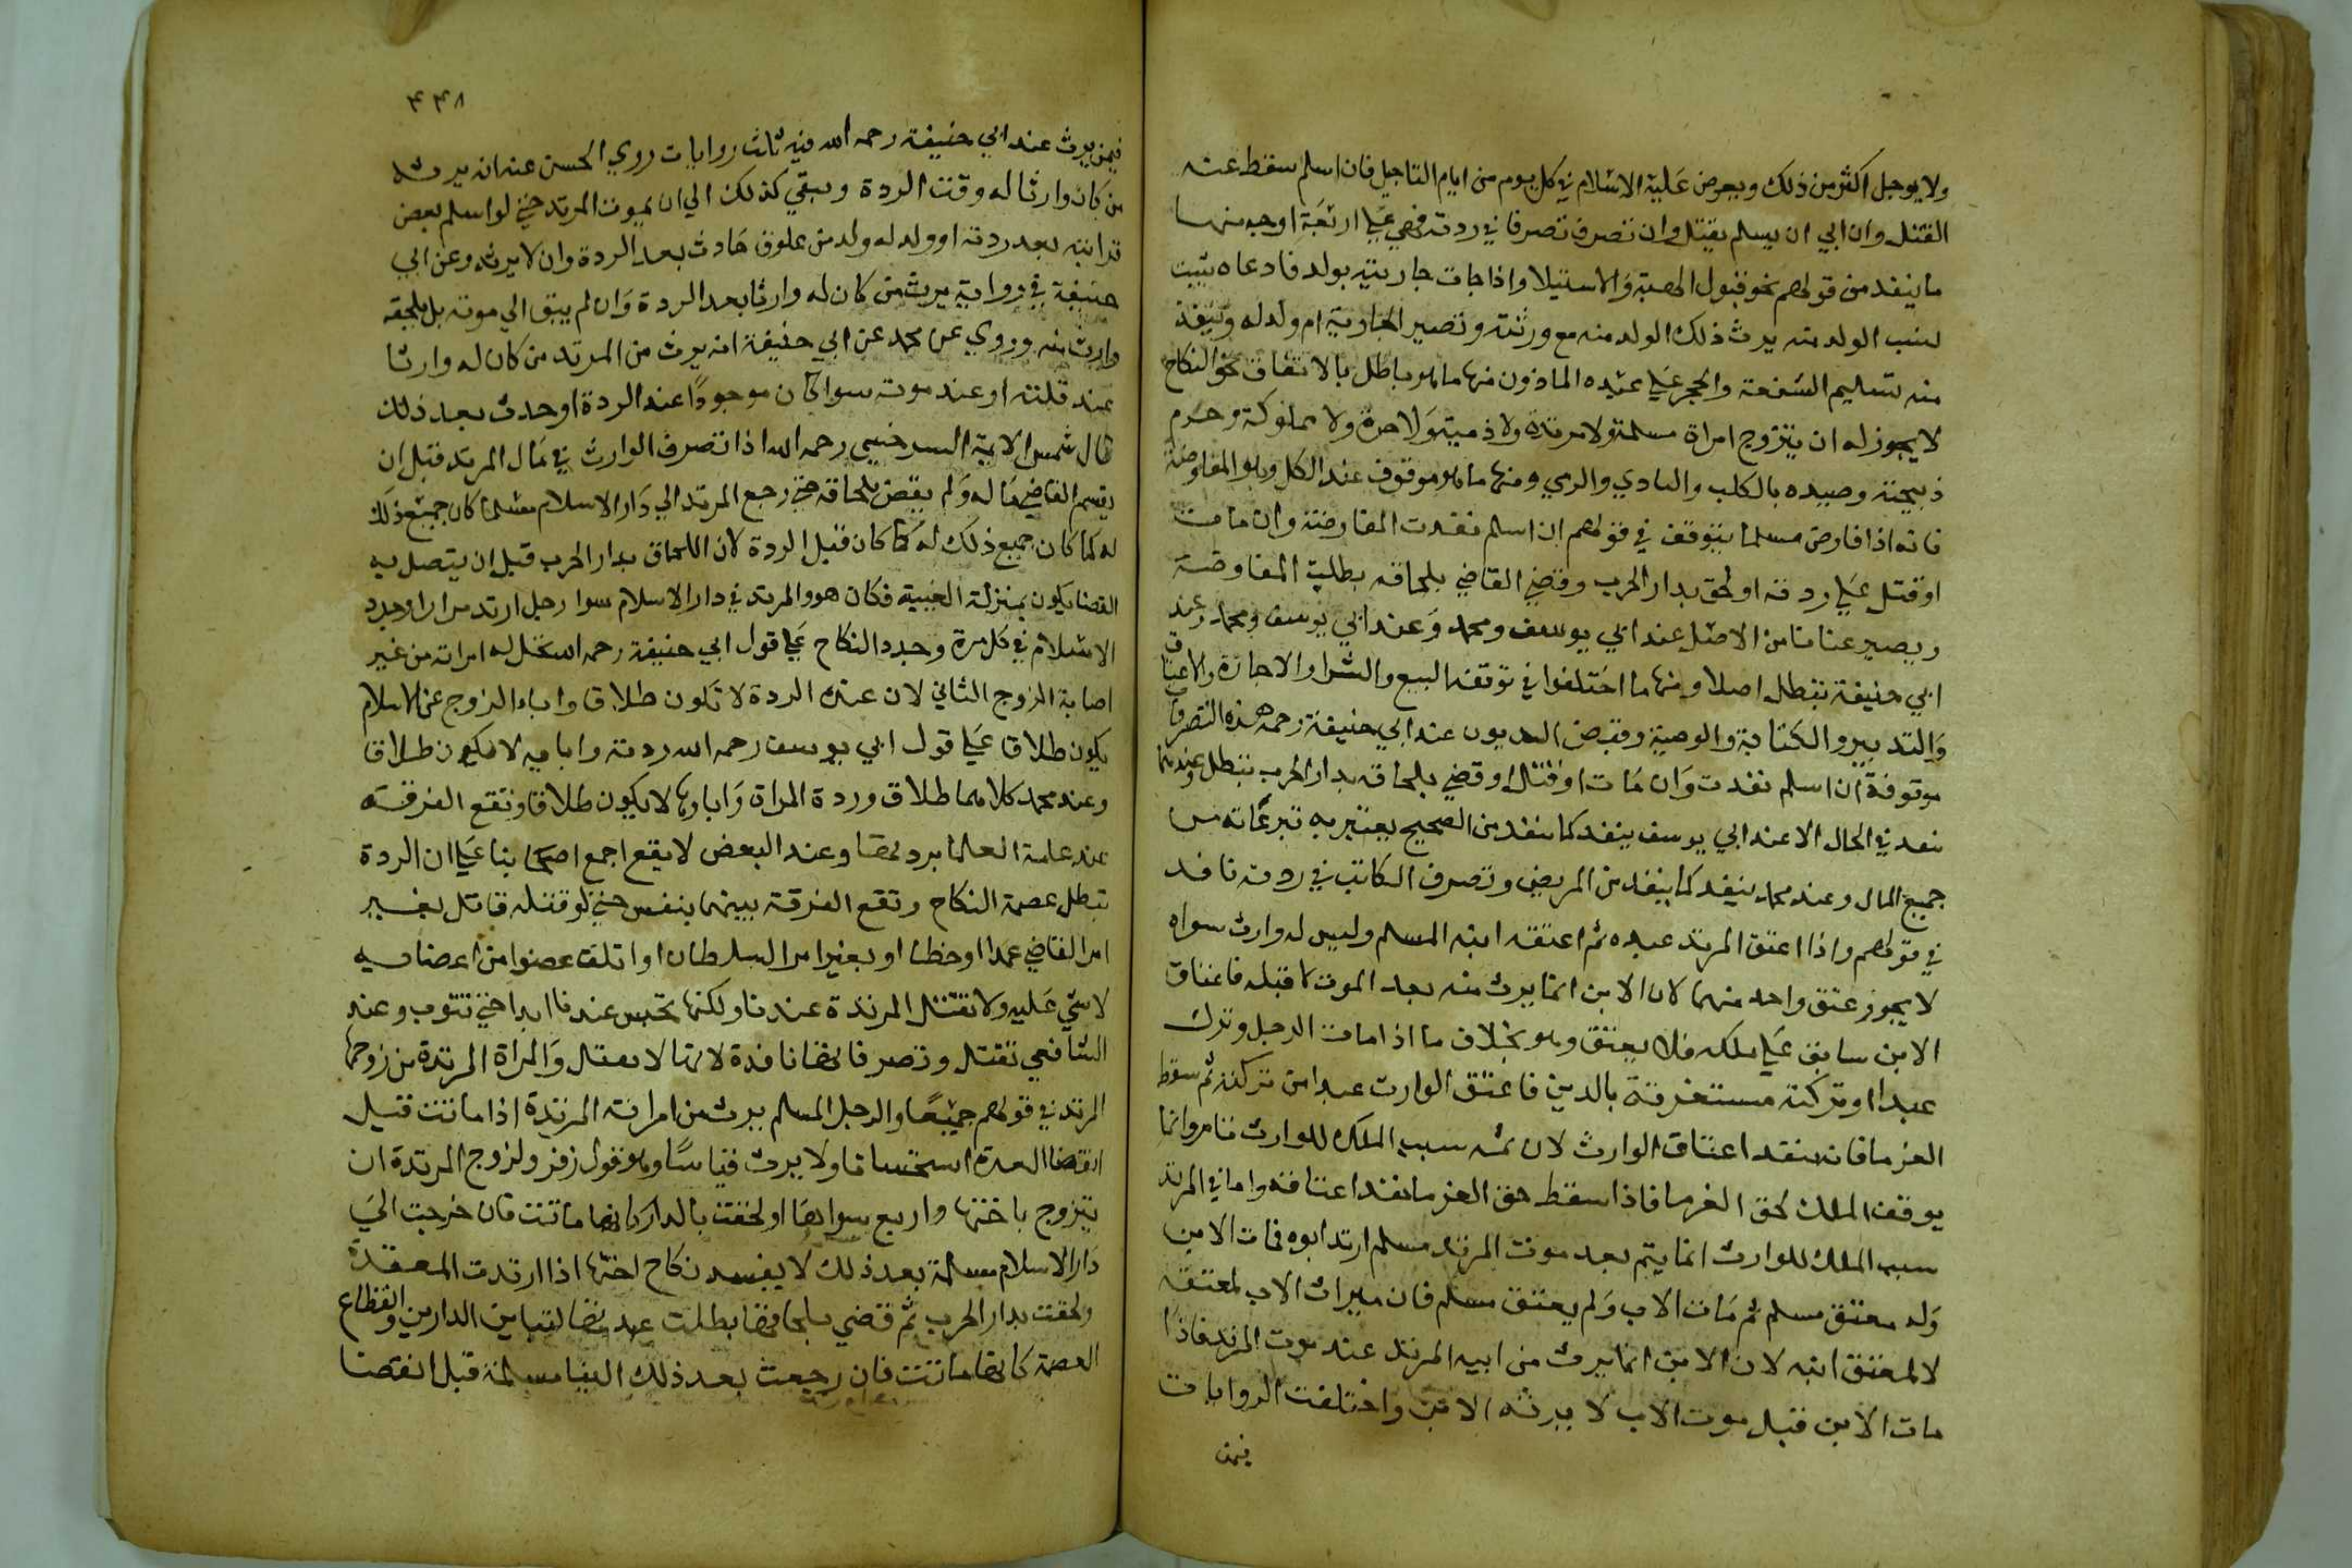 ولا يوجل اكثر من ذلك ويعرض عليه الاسلام في كل يوم من ايام التاجيل فان اسلم سقط عنه
القتل وان ابي ان يسلم يقتل وان تصرف تصرفا في ردته فهي علي اربعة اوجه منها
ما ينفد من قولهم نحو قبول الهبة والاستيلا واذا جات جاريته بولد فادعاه يثبت
نسب الولد منه يرث ذلك الولد منه مع ورثته وتصير الجارية ام ولد له وينفذ
منه تسليم الشفعة والحجر علي عبده الماذون منها ما هو باطل بالاتفاق نحو النكاح
لا يجوز له ان يتزوج امراة مسلمة ولا مرتدة ولا ذمية ولا حرة ولا مملوكة وحرم
ذبيحته وصيده بالكلب والبازي والرمي ومنها ما هو موقوف عند الكل وهو المفاوضة
فانه اذا فاوض مسلما يتوقف في قولهم ان اسلم نفدت المفاوضة وان مات
او قتل علي ردته او لحق بدار الحرب وقضي القاضي بلحاقه بطلت المفاوضة
ويصير عنانا من الاصل عند ابي يوسف ومحمد وعند ابي يوسف ومحمد وعند
ابي حنيفة تبطل اصلا ومنها ما اختلفوا في توقفه البيع والشرا والاجازة والاعتاق
والتدبير والكتابة والوصية وقبض الديون عند ابي حنيفة رحمه هذه التصرفات
موقوفة ان اسلم نفدت وان مات او قتل او قضي بلحاقه بدار الحرب تبطل وعندهما
ينفد في الحال الا عند ابي يوسف ينفد كما ينفد من الصحيح يعتبر به تبرعاته من
جميع المال وعند محمد ينفد كما ينفد من المريض وتصرف الكاتب في ردته نافد
في قولهم واذا اعتق المرتد عبده ثم اعتقه ابنه المسلم وليس له وارث سواه
لا يجوز عتق واحد منهما لان الابن انما يرث منه بعد الموت لا قبله فاعتاق
الابن سابق علي ملكه فلا يعتق وهو بخلاف ما اذا مات الرجل وترك
عبدا وتركته مستغرقة بالدين فاعتق الوارث عبدا من تركته ثم سقط
الغرما فانه ينفد اعتاق الوارث لان ثمه سبب الملك للوارث تنامر وانما
يوقف الملك لحق الغرما فاذا سقط حق الغرما نفد اعتاقه واما في المرتد
سبب الملك للوارث انما يتم بعد موت المرتد مسلم ارتد ابوه فمات الابن
وله معتق مسلم ثم مات الاب ولم يعتق مسلم فان ميراث الاب لمعتقه
لا لمعتق ابنه لان الابن انما يرث من ابيه المرتد عند موت المرتد فاذا
مات الابن قبل موت الاب لا يرثه الابن واختلفت الروايات
فيمن
٤٤٨
فيمن يرث عند ابي حنيفة رحمه الله فيه ثلث روايات روي الحسن عنه انه يرثه
من كان وارثا له وقت الردة وبقي كذلك الي ان يموت المرتد حتي لو اسلم بعض
قرابته بعد ردته او ولد له ولد من علوق حادث بعد الردة وان لا يرثه وعن ابي
حنيفة في رواية يرث من كان له وارثا بعد الردة وان لم يبق الي موته بل يلحقه
وارث منه وروي عن محمد عن ابي حنيفة انه يرث من المرتد من كان له وارثا
عند قلته او عند موته سوا كان موجودا عند الردة او حدث بعد ذلك
قال شمس الايمة السرخسي رحمه الله اذا تصرف الوارث في مال المرتد قبل ان
يقسم القاضي ماله ولم يقض بلحاقه حتي رجع المرتد الي دار الاسلام مسلما كان جميع ذلك
له كما كان جميع ذلك له كما كان قبل الردة لان اللحاق بدار الحرب قبل ان يتصل به
القضا يكون بمنزلة الغيبة فكان هو والمرتد في دار الاسلام سوا رجل ارتد مرارا وجدد
الاسلام في كل مرة وجدد النكاح علي قول ابي حنيفة رحمه الله تحل له امراته من غير
اصابة الزوج الثاني لان عنده الردة لا تكون طلاقا واباء الزوج عن الاسلام
يكون طلاقا علي قول ابي يوسف رحمه الله ردته واباءه لا يكون طلاقا
وعند محمد كلاهما طلاق وردة المراة واباؤها لا يكون طلاقا وتقع الفرقة
عند عامة العلما بردتها وعند البعض لا يقع اجمع اصحابنا علي ان الردة
تبطل عصمة النكاح وتقع الفرقة بينهما بنفس حتي لو قتله قاتل بغير
امر القاضي عمدا او خطا او بغير امر السلطان او اتلف عضوا من اعضايه
لا شي عليه ولا تقتل المرتدة عندنا ولكنها تحبس عندنا ابدا حتي تتوب وعند
الشافعي تقتل وتصرفاتها نافدة لانها لا تقتل والمراة المرتدة من زوجها
المرتد في قولهم جميعا والرجل المسلم يرث من امراته المرتدة اذا ماتت قبل
انقضا العدة استحسانا ولا يرث قياسا وهو قول زفر ولزوج المرتدة ان
يتزوج باختها واربع سواها اولحقت بالدار كانها ماتت فان خرجت الي
دار الاسلام مسلمة بعد ذلك لا يفسد نكاح اختها اذا ارتدت المعتدة
ولحقت بدار الحرب ثم قضي بلحاقها بطلت عدتها لتباين الدارين وانقطاع
العصمة كانها ماتت فان رجعت بعد ذلك الينا مسلمة قبل انقضا